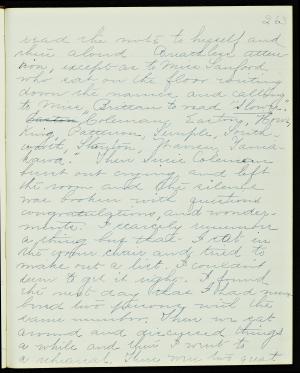 263
read the note to herself and
then aloud. Breathless atten-
tion, except as to Miss Sanford
who sat on the floor writing
down the names and calling
to Miss Brittan to read "slowly".
Coleman, Easton,
King, Patterson, Semple, South-
Then Susie Coleman
burst out crying and left
the room and the silence
was broken with questions
congratulations, and wonder-
ments. I scarcely remember
a thing but that I sat in
the chair and tried to
make out a list. I couldn't
seem to get it right. I found
the next day that I had num-
bered two persons with the
same number. Then we sat
around and discussed things
a while and then I went to
a rehearsal. There were two great